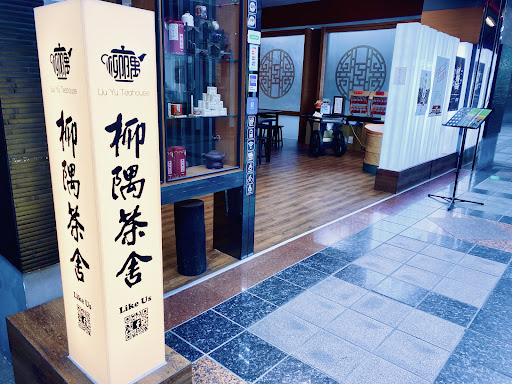 Liu Yu Teahouse
柳隅茶舍
Like Us
Liu Yu Teahouse
柳隅茶舍
Like Us